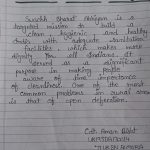 Swachh Bharat Abhiyan is a
targeted mission to build a
clean, hygienic, and healthy
India with adequate sanitation
facilities which makes more
dignity for all Indians. It
served as significant
purpose in making people
aware of the importance
of cleanliness. One of the most
common problems in rural areas
is that of open defecation.
Cdt. Aman Bisht